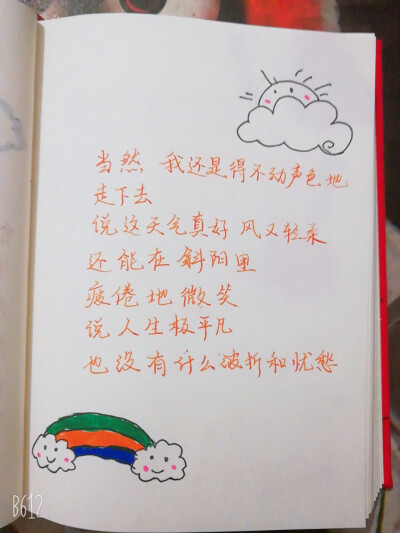 当然 我还是得不动声色地
走下去
说这天气真好 风又轻柔
还能在斜阳里
疲倦地微笑
说人生极平凡
也没有什么波折和忧愁
B612